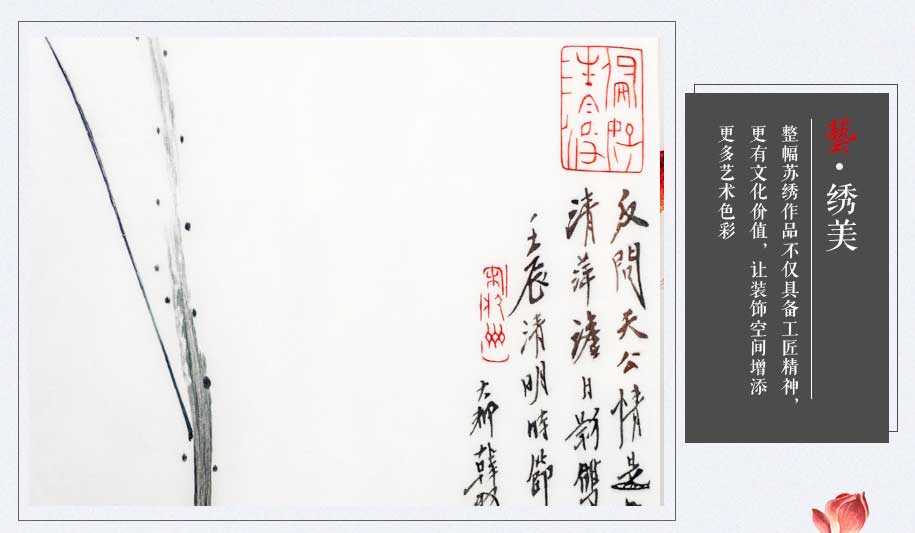 藝·绣美
整幅苏绣作品不仅具备工匠精神，
更有文化价值，让装饰空间增添
更多艺术色彩
反問天公情是
清萍
日影
壬辰清明時節